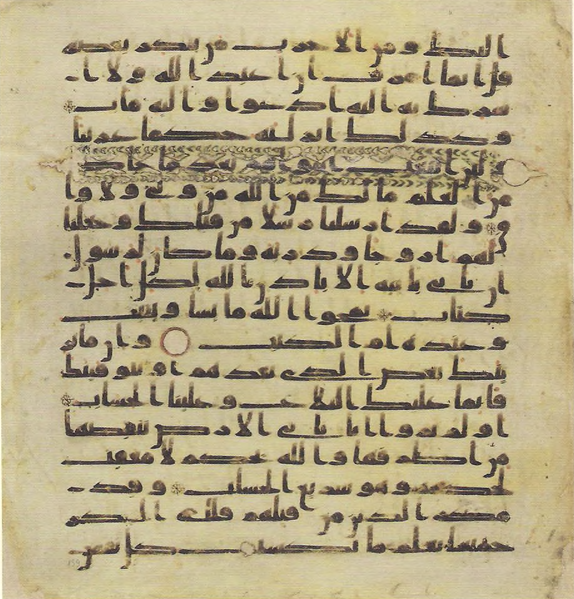 اليك ومن الاحزب من ينكر بعضه
قل انما امرت ان اعبد الله ولا ا
شرك به اليه ادعوا واليه ماب
وكذلك انزلنه حكما عربيا
ولئن اتبعت اهواهم بعد ما جاك
من العلم ما لك من الله من ولي ولا وا
ق ولقد ارسلنا رسلا من قبلك وجعلنا
لهم ازوجا وذرية وما كان لرسول
ان ياتي باية الا باذن الله لكل اجل
كتاب يمحوا الله ما يشا ويثبت
وعنده ام الكتب وان ما نر
ينك بعض الذي نعدهم او نتوفينك
فانما عليك البلغ وعلينا الحساب
اولم يروا انا ناتي الارض ننقصها
من اطرفها والله يحكم لا معقب
لحكمه وهو سريع الحساب وقد
مكر الذين من قبلهم فلله المكر
جميعا يعلم ما تكسب كل نفس